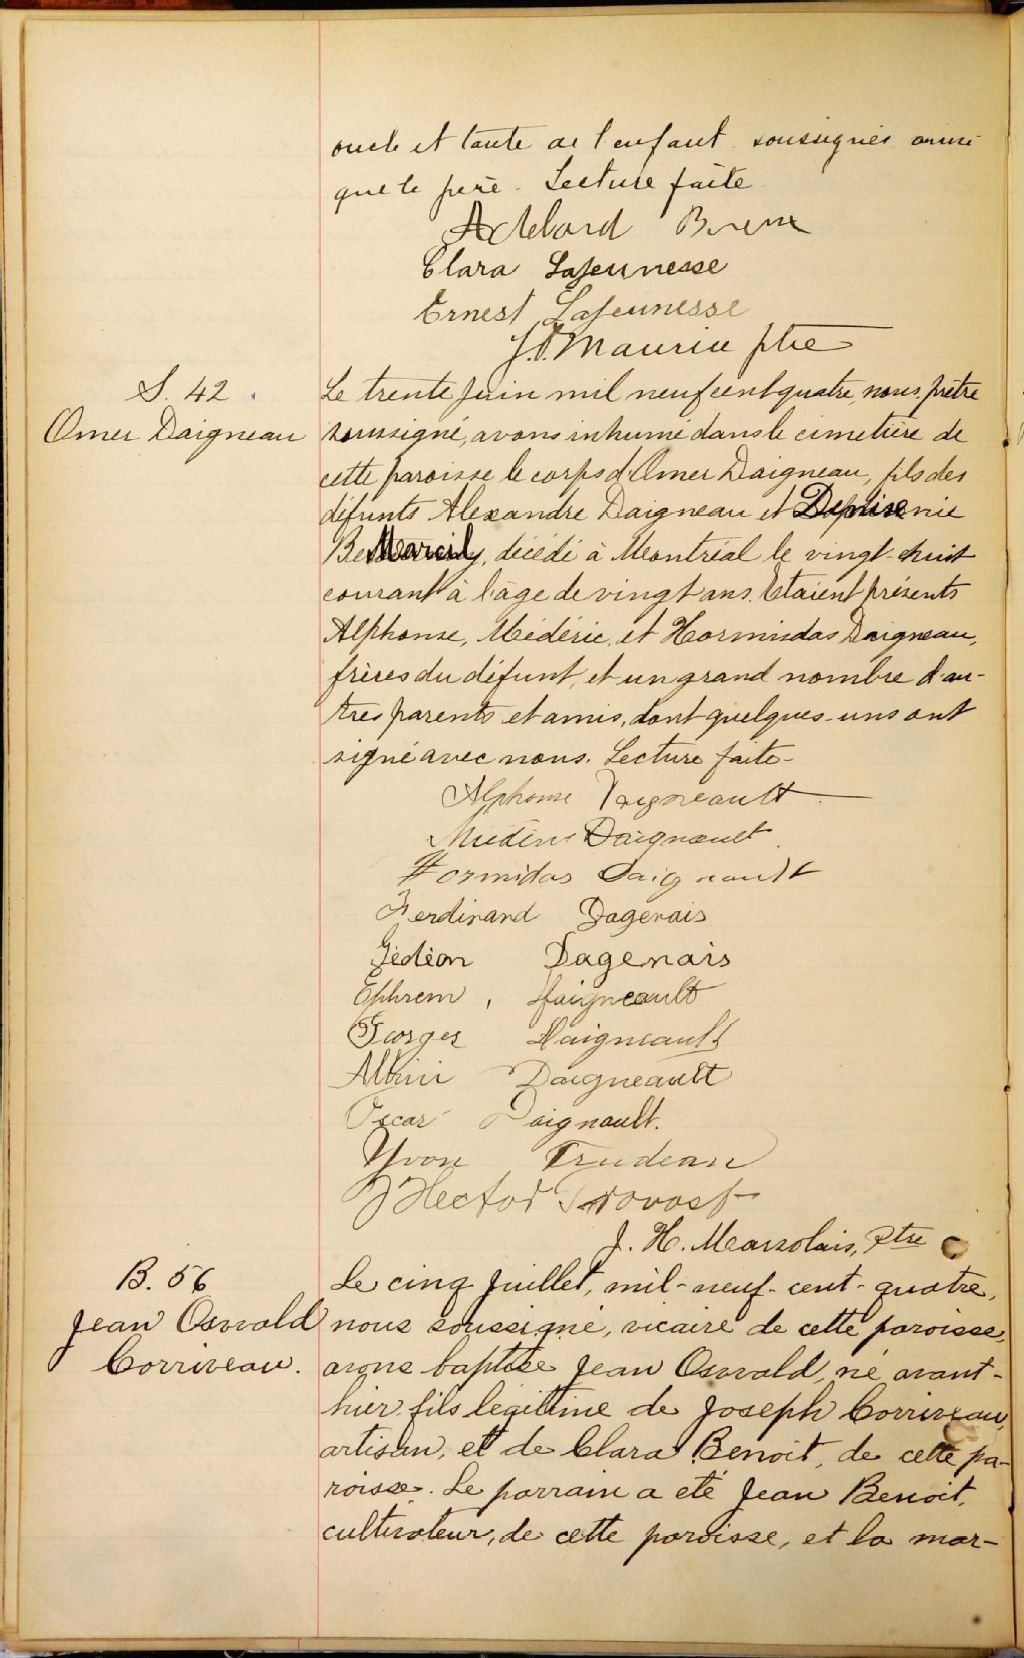 oncle et tante de l'enfant soussignés ainsi
que le père. Lecture faite
Adelard
Clara Lajeunesse
Ernest Lajeunesse
J. O. Maurice ptre
S. 42
Omer Daigneau
Le trente Juin mil neuf cent quatre, nous, prêtre
soussigné, avons inhumé dans le cimetière de
cette paroisse le corps d'Omer Daigneau, fils des
défunts Alexandre Daigneau et Denise
Marcil, décédé à Montréal le vingt-huit
courant à l'âge de vingt ans. Etaient présents
Alphonse, Médéric, et Hormisdas Daigneau,
frères du défunt, et un grand nombre d'au-
tres parents et amis, dont quelques-uns ont
signé avec nous. Lecture faite-
Alphonse Daigneault
Médéric Daigneault
Hormidas Daignault
Ferdinand Dagenais
Gédéon Dagenais
Ephrem, Daigneault
Georges Daigneault
Albini Daigneault
Oscar Daignault.
Yvon Trudeau
Hector Provost
J. H. Marsolais, Ptre
B. 56
Jean Osvald
Corriveau.
Le cinq Juillet, mil-neuf-cent-quatre,
nous soussigné, vicaire de cette paroisse,
avons baptisé Jean Osvald, né avant-
hier, fils légitime de Joseph Corriveau,
artisan, et de Clara Benoit, de cette pa-
roisse. Le parrain a été Jean Benoit,
cultivateur, de cette paroisse, et la mar-